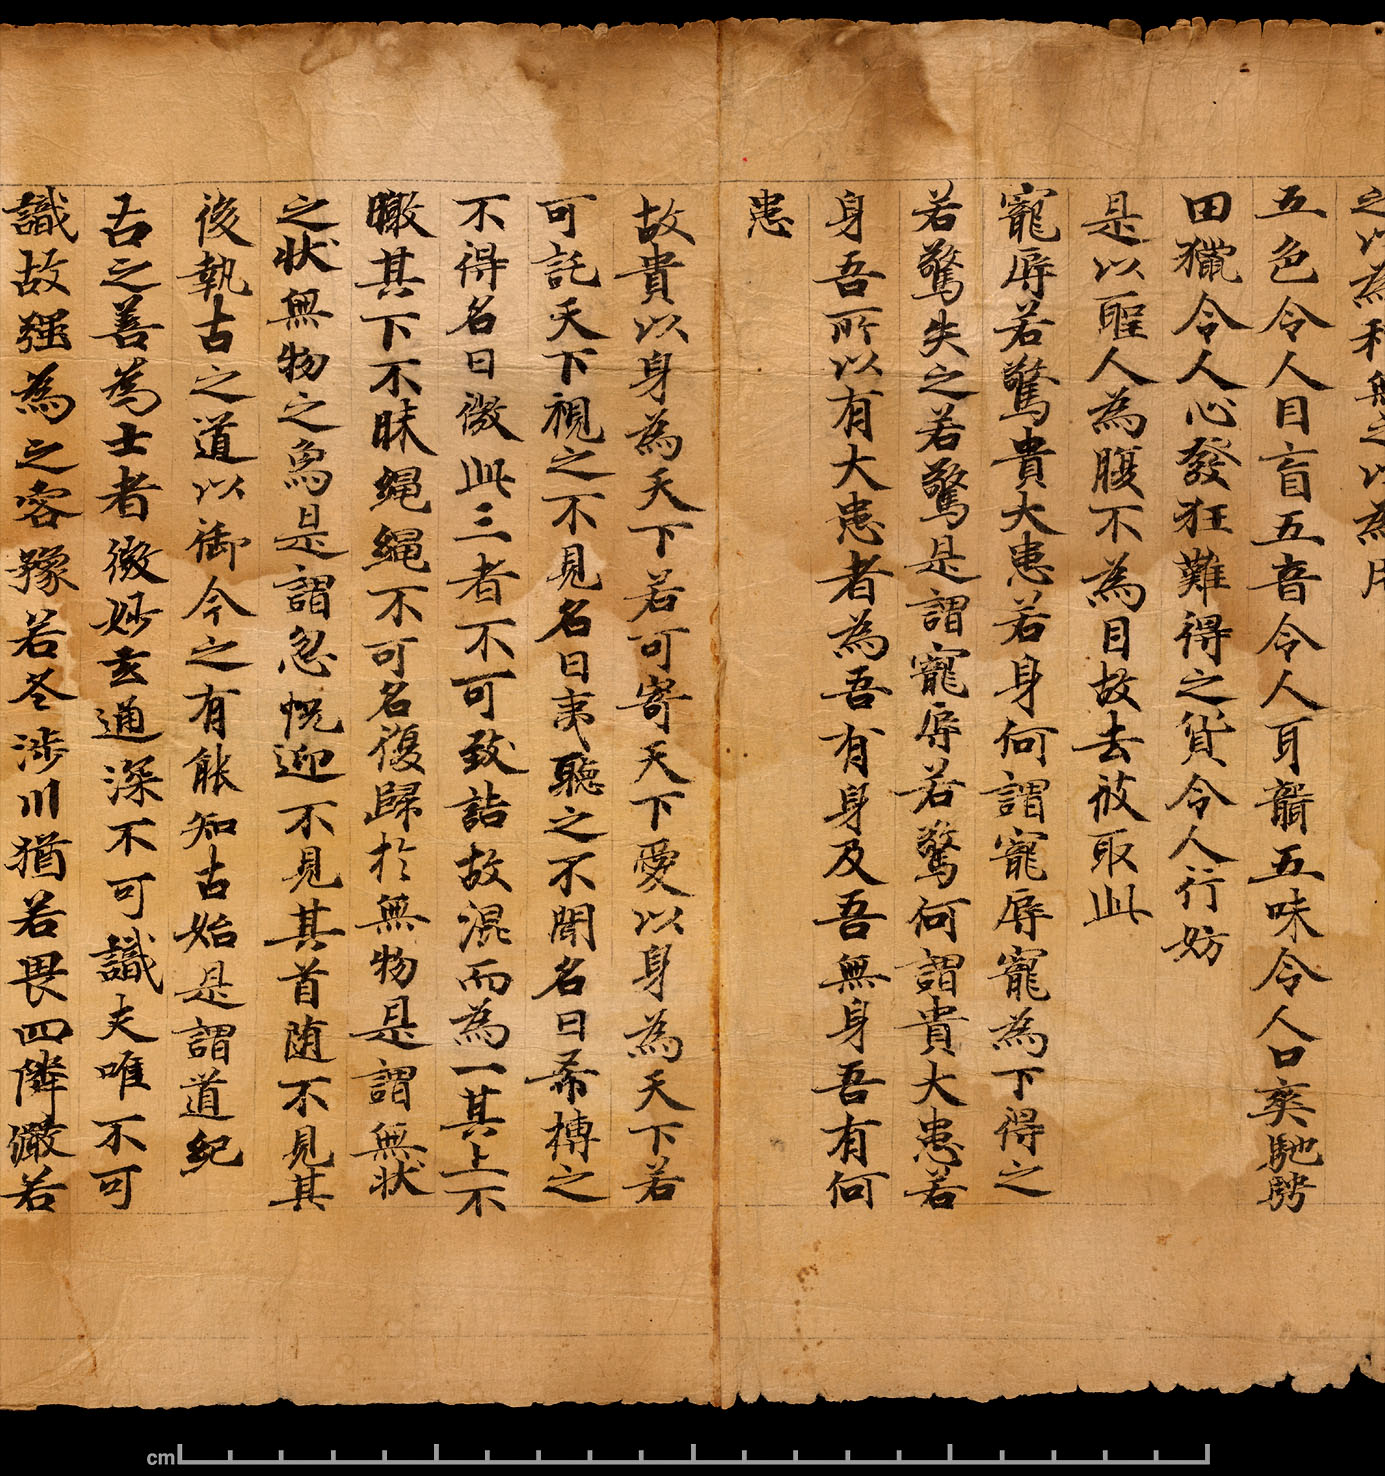 之以為利無之以為用
五色令人目盲五音令人耳聾五味令人口爽馳騁
田獵令人心發狂難得之貨令人行妨
是以聖人為腹不為目故去彼取此
寵辱若驚貴大患若身何謂寵辱寵為下得之
若驚失之若驚是謂寵辱若驚何謂貴大患若
身吾所以有大患者為吾有身及吾無身吾有何
患
故貴以身為天下若可寄天下愛以身為天下若
可託天下視之不見名曰夷聽之不聞名曰希摶之
不得名曰微此三者不可致詰故混而為一其上不
皦其下不昧繩繩不可名復歸於無物是謂無状
之状無物之象是謂忽恍迎不見其首随不見其
後執古之道以御今之有能知古始是謂道紀
古之善為士者微妙玄通深不可識夫唯不可
識故强為之容豫若冬涉川猶若畏四隣儼若
cm